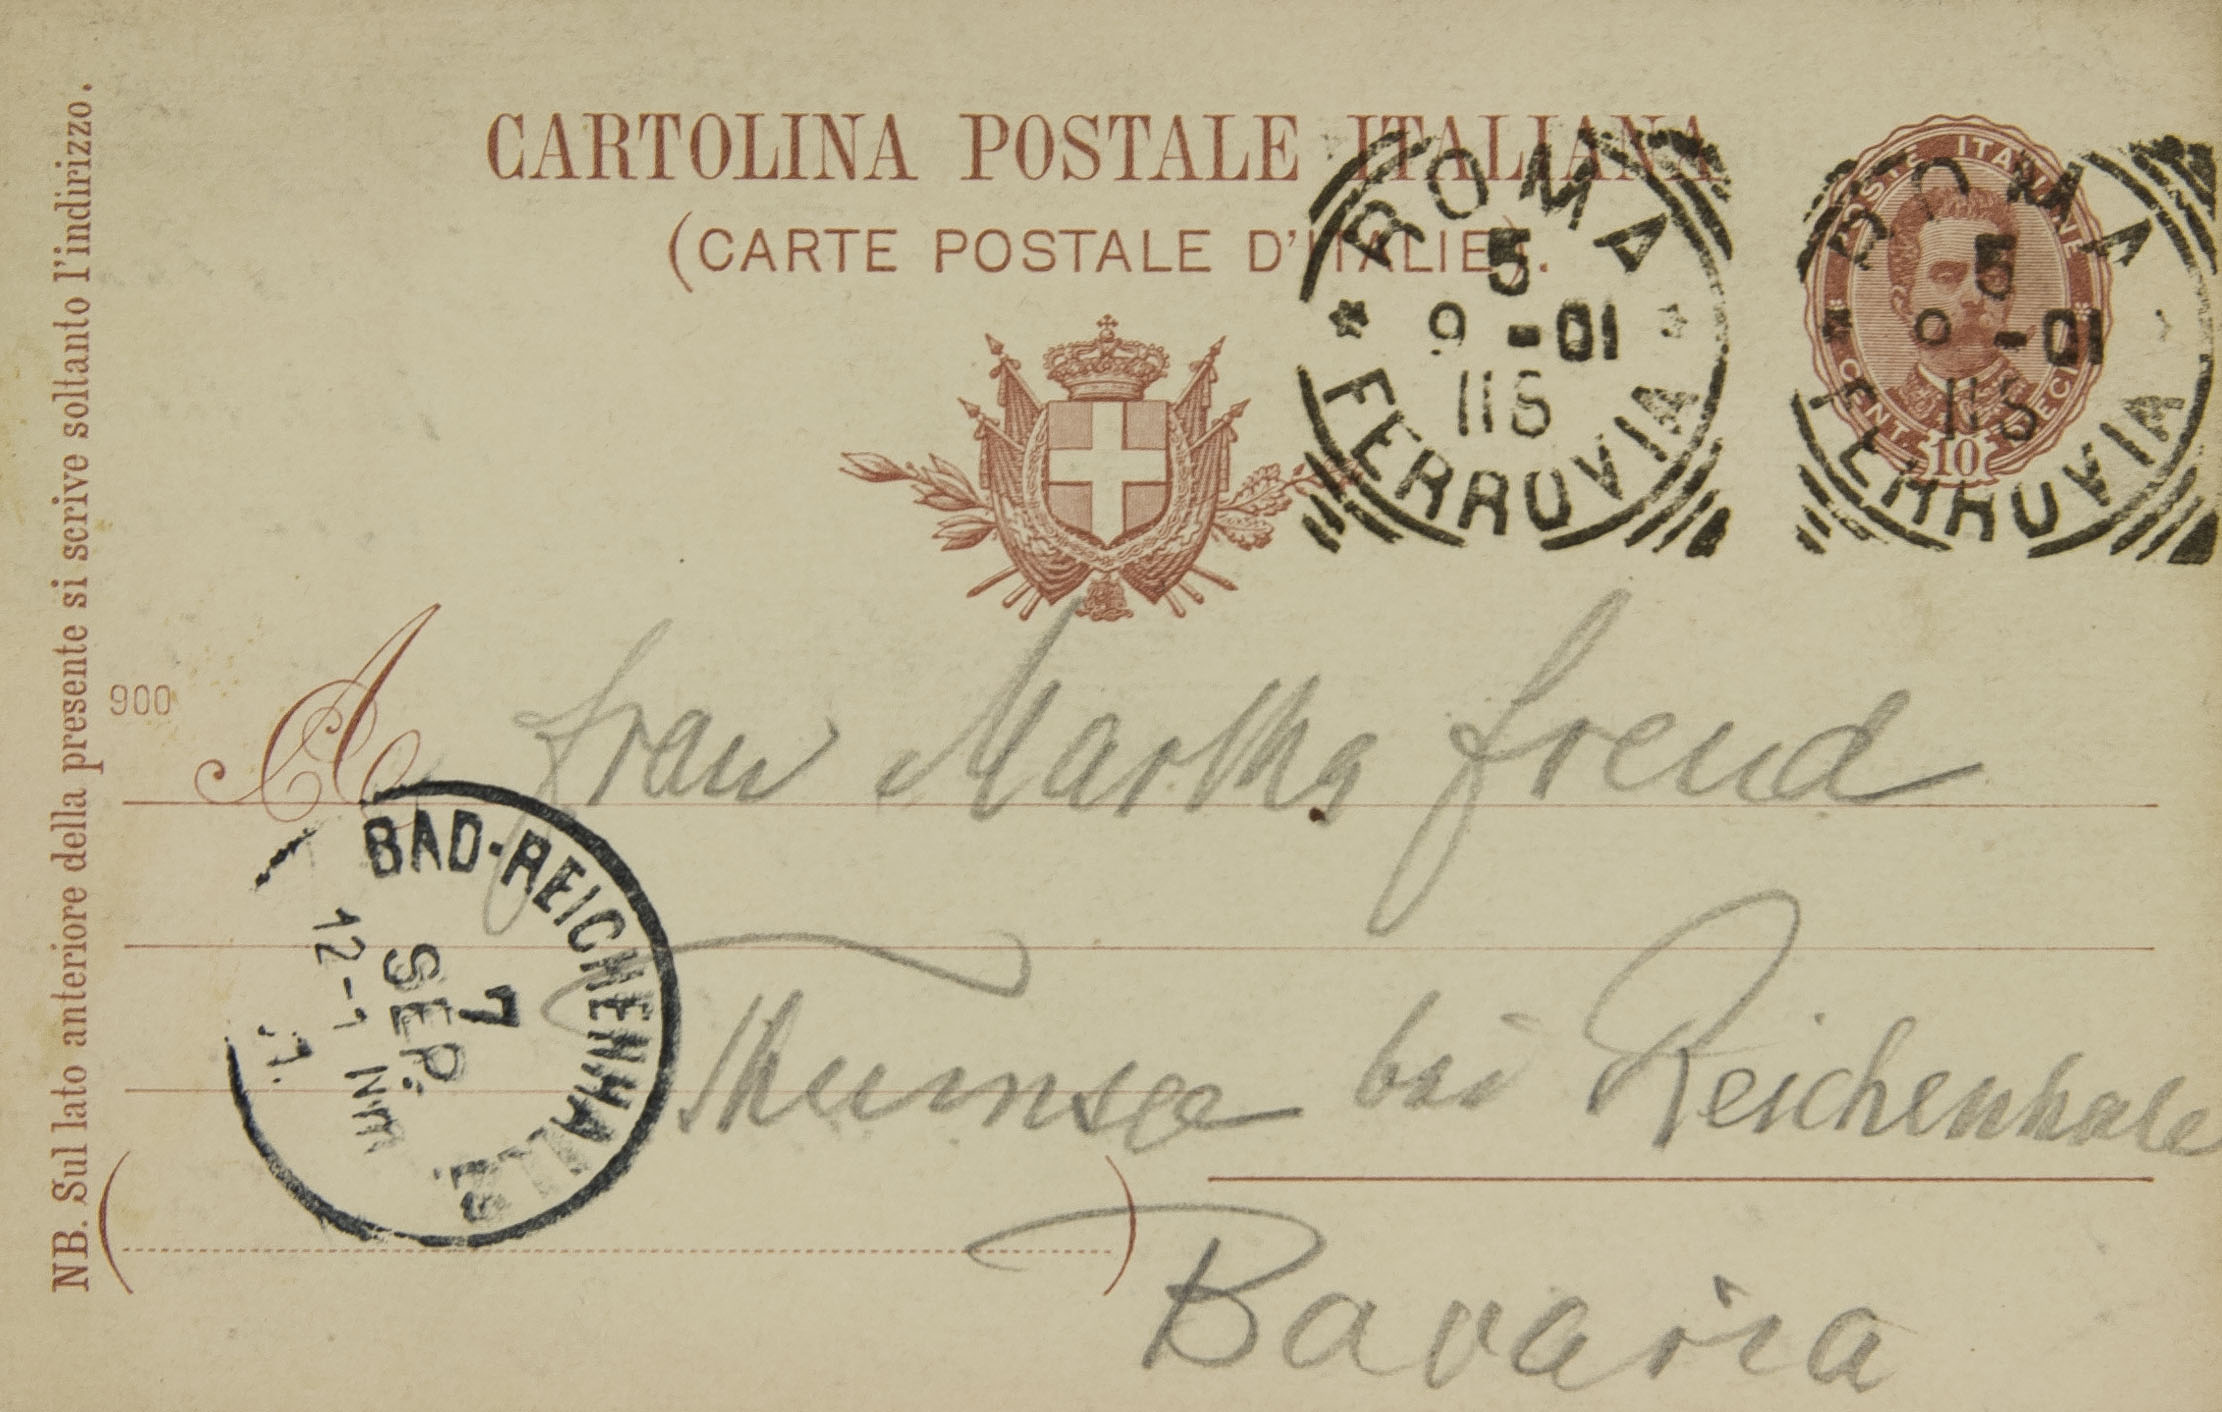 CARTOLINA POSTALE ITALIANA
(CARTE POSTALE D'ITALIE).
ROMA
5
9 -01
11S
FERROVIA
POSTE ITALIANE
CENT. 10 DIECI
ROMA
5
9 -01
11S
FERROVIA
NB. Sul lato anteriore della presente si scrive soltanto l'indirizzo.
900
A Frau Martha Freud
Thumsee bei Reichenhall
Bavaria
BAD-REICHENHALL
7
SEP.
12-1 Nm